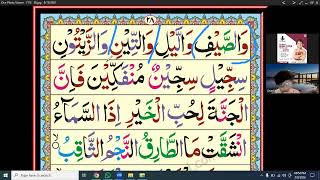 ٢٨
وَالصَّيْفِ وَالَّيْلِ وَالتِّيْنِ وَالزَّيْتُوْنِ
سِجِّيْلٍ سِجِّيْنٌ مُنْفَكِّيْنَ فَاِنَّ
الْجَنَّةَ لِحُبِّ الْخَيْرِ اِذَا السَّمَآءُ
انْشَقَّتْ مَا الطَّارِقُ النَّجْمُ الثَّاقِبُ